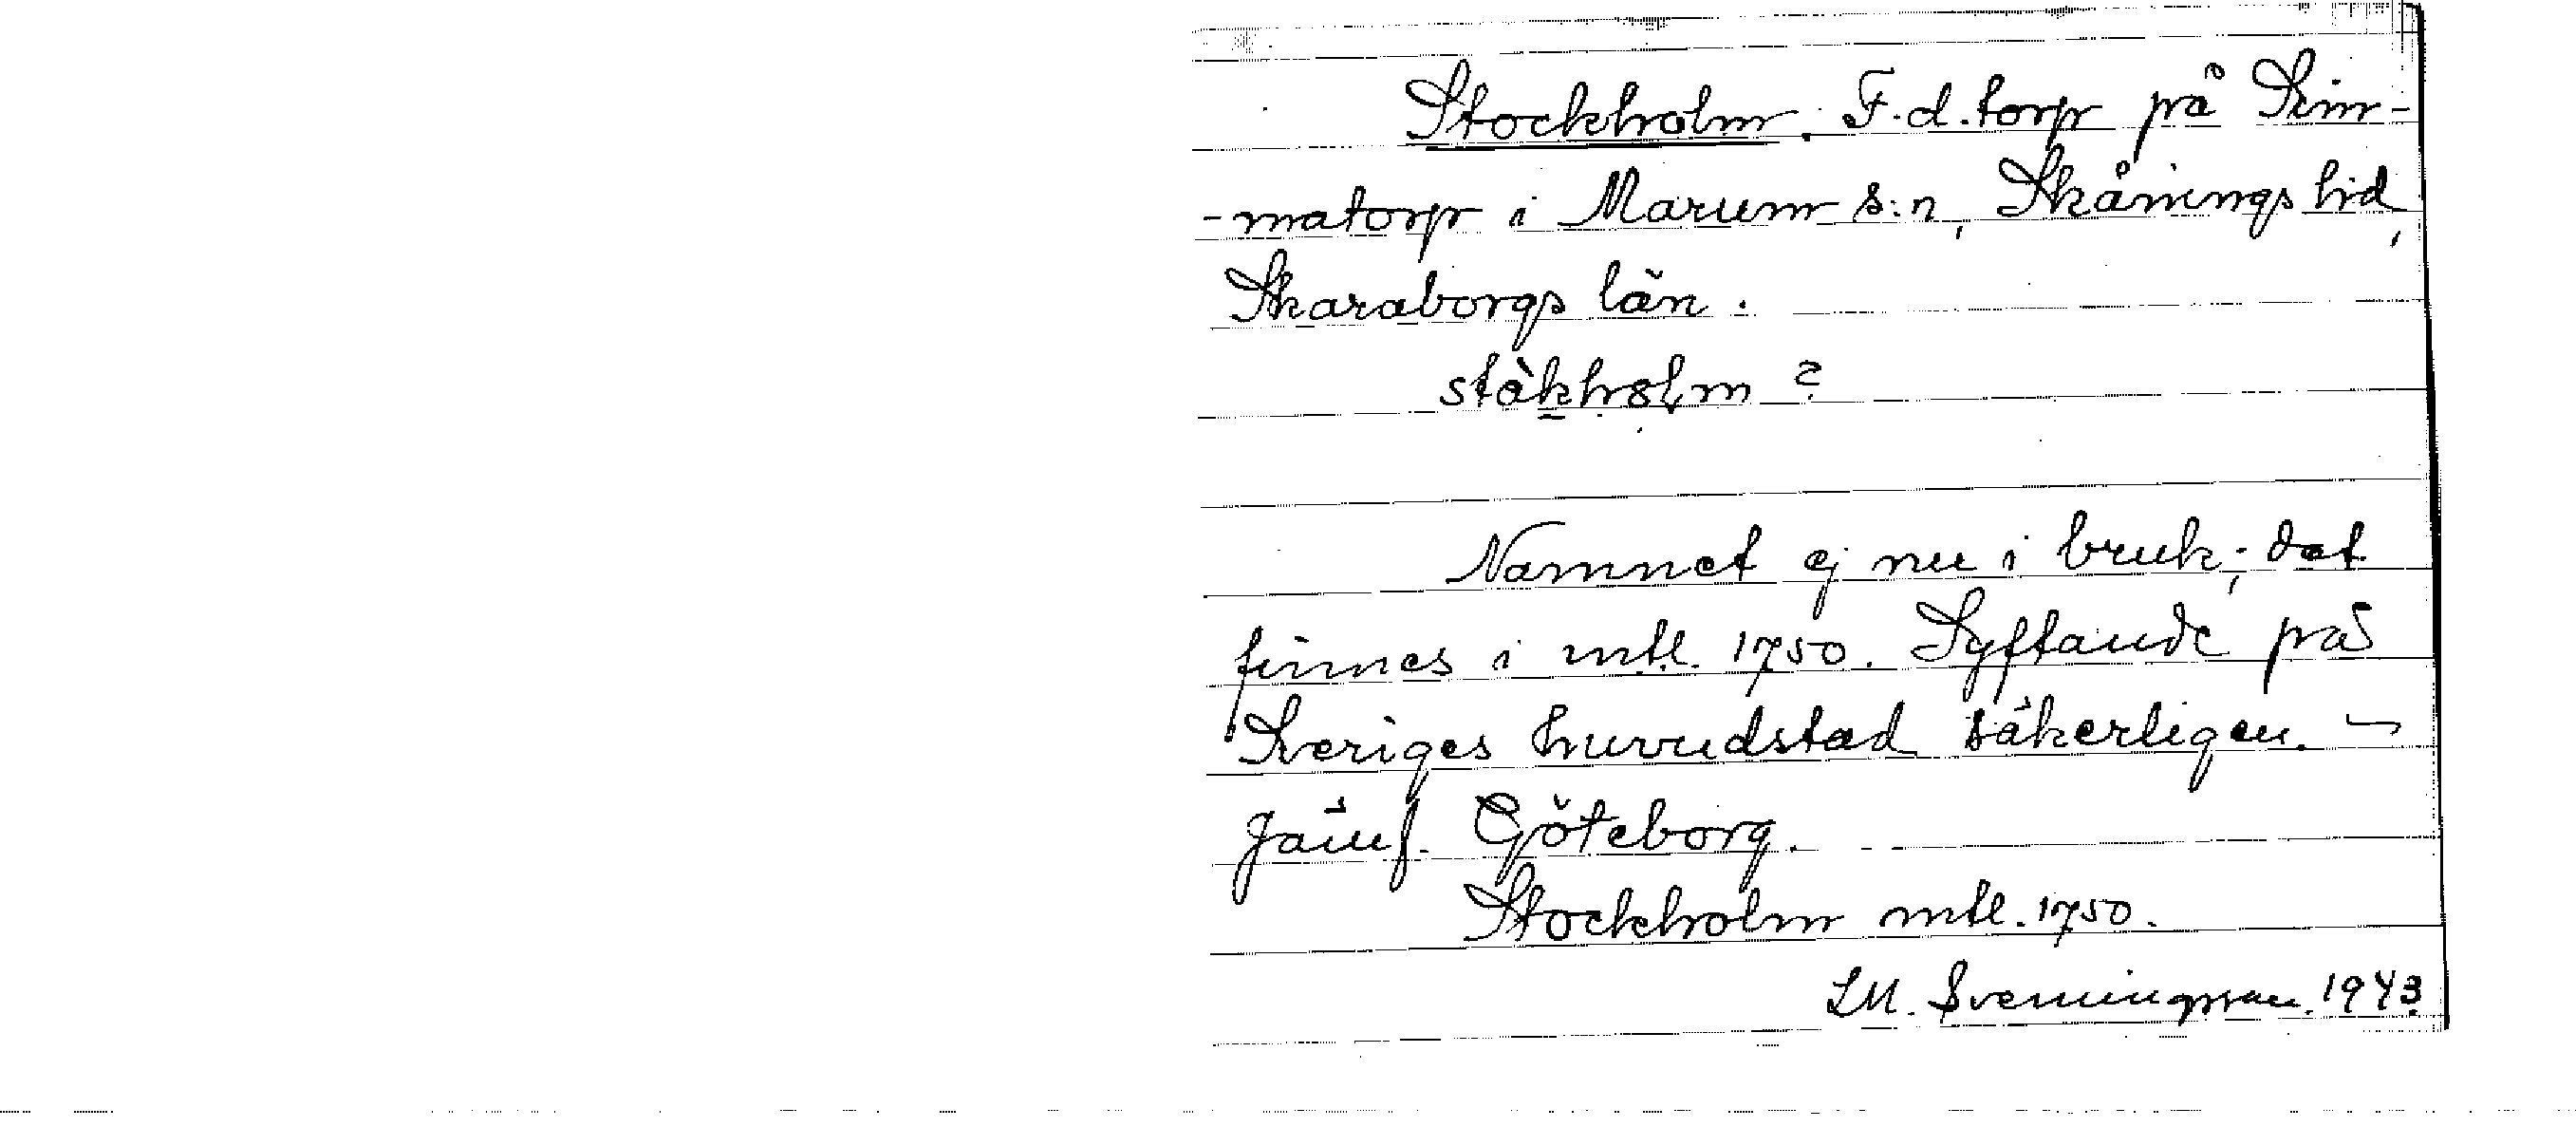 Stockholm. F.d. torp på Sim-
-matorp i Marum s:n, Skånings hd,
Skaraborgs län.
ståkholm?
Namnet ej nu i bruk; det
finnes i mtl. 1750. Syftande på
Sveriges huvudstad säkerligen. –
Jämf. Göteborg.
Stockholm mtl. 1750.
LM. Svenningsson. 1943.